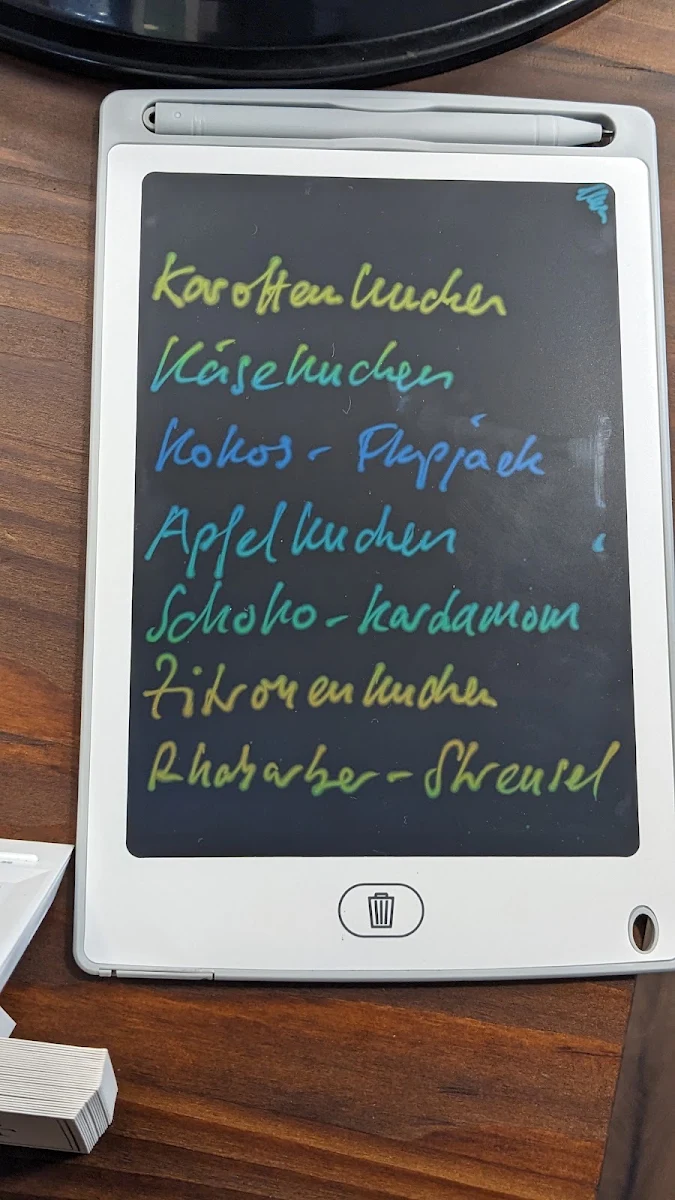 Karottenkuchen
Käsekuchen
Kokos-Flapjack
Apfelkuchen
Schoko-Kardamom
Zitronenkuchen
Rhabarber-Streusel